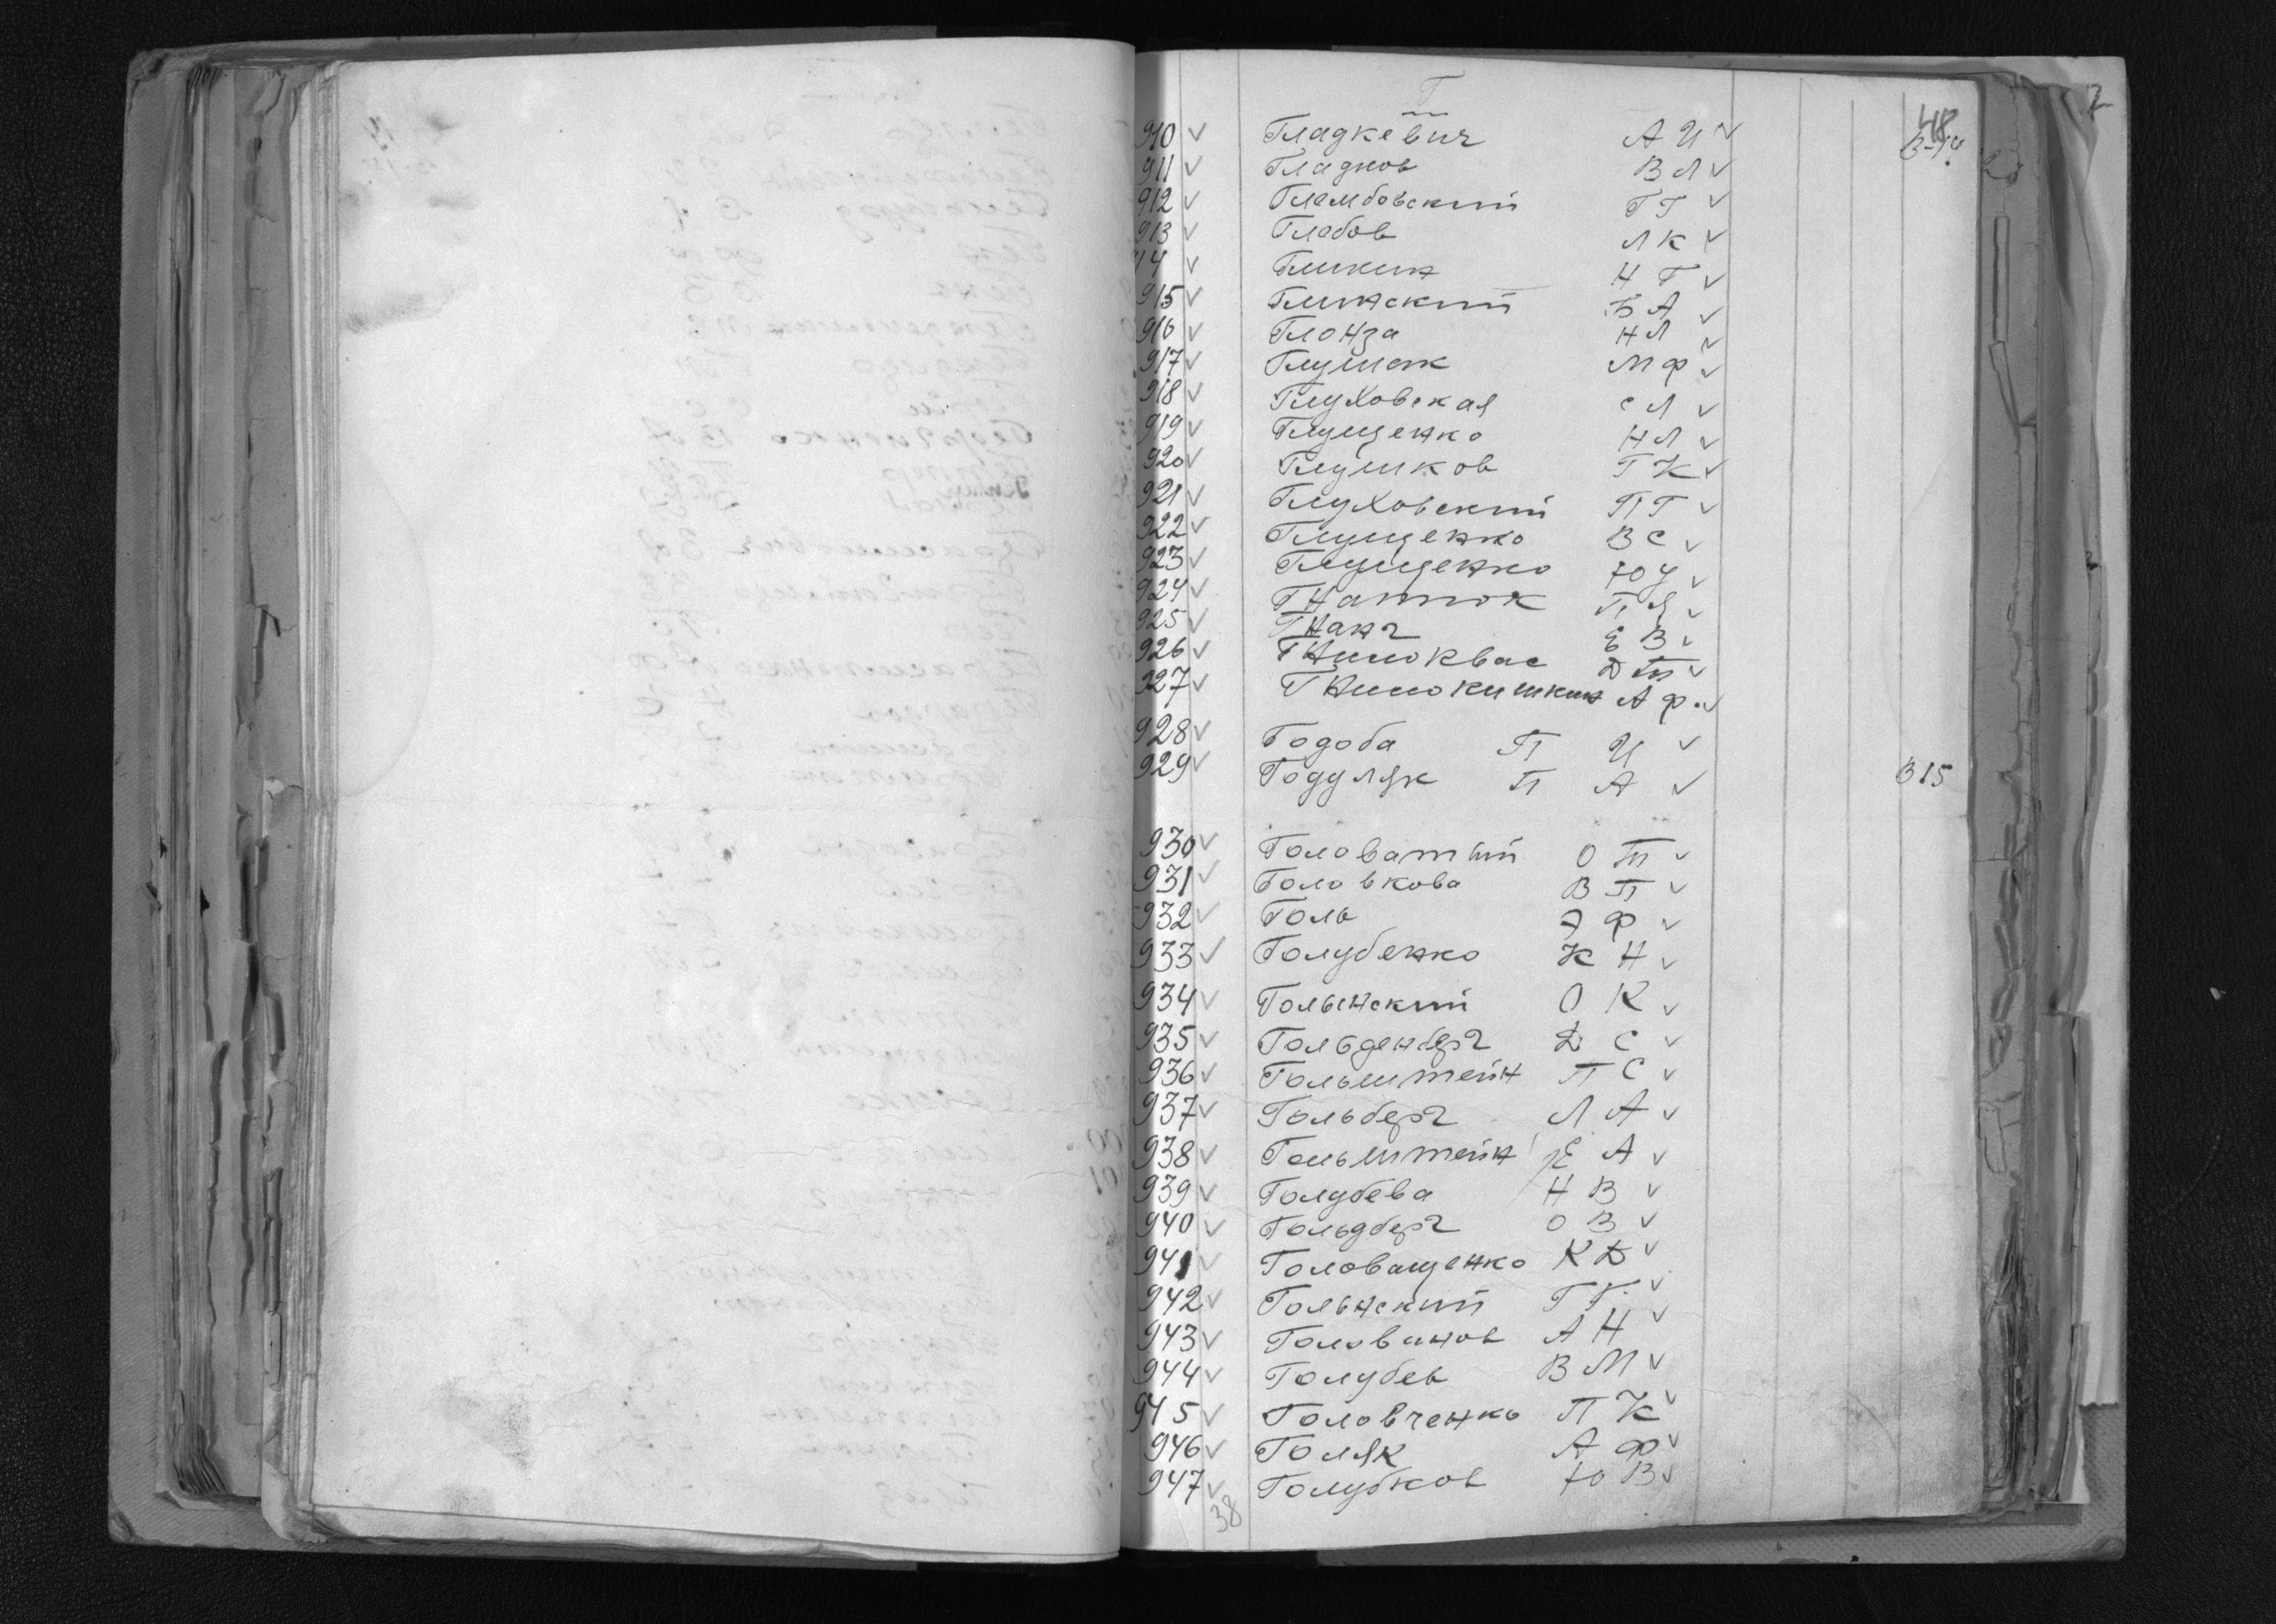 Г
48
910 ✓ Гладкевич А И ✓ В-14
911 ✓ Гладков В Л ✓
912 ✓ Гламбовский Г Г ✓
913 ✓ Глабов Л К ✓
914 ✓ Гликин Н Г ✓
915 ✓ Глинский Б А ✓
916 ✓ Глонза Н Л ✓
917 ✓ Глушак М Ф ✓
918 ✓ Глуховская С Л ✓
919 ✓ Глущенко Н Л ✓
920 ✓ Глушков Г К ✓
921 ✓ Глуховский П Г ✓
922 ✓ Глущенко В С ✓
923 ✓ Глущенко Ю У ✓
924 ✓ Гнатюк П Я ✓
925 ✓ Гнанг Е В ✓
926 ✓ Гнилоквас Д Т ✓
927 ✓ Гнилокишкин А Ф. ✓
928 ✓ Годоба П И ✓
929 ✓ Годуляк П А ✓ В 15
930 ✓ Головатый О Т ✓
931 ✓ Головкова В П ✓
932 ✓ Голь Э Ф ✓
933 ✓ Голубенко К Н ✓
934 ✓ Голынский О К ✓
935 ✓ Гольденберг Д С ✓
936 ✓ Гольштейн П С ✓
937 ✓ Гольберг Л А ✓
938 ✓ Гольштейн Е А ✓
939 ✓ Голубева Н В ✓
940 ✓ Гольдберг О В ✓
941 ✓ Головащенко К Д ✓
942 ✓ Гольнский Г Г. ✓
943 ✓ Голованов А Н ✓
944 ✓ Голубев В М ✓
945 ✓ Головченко П К ✓
946 ✓ Голяк А Ф ✓
947 ✓ Голубков Ю В ✓
38